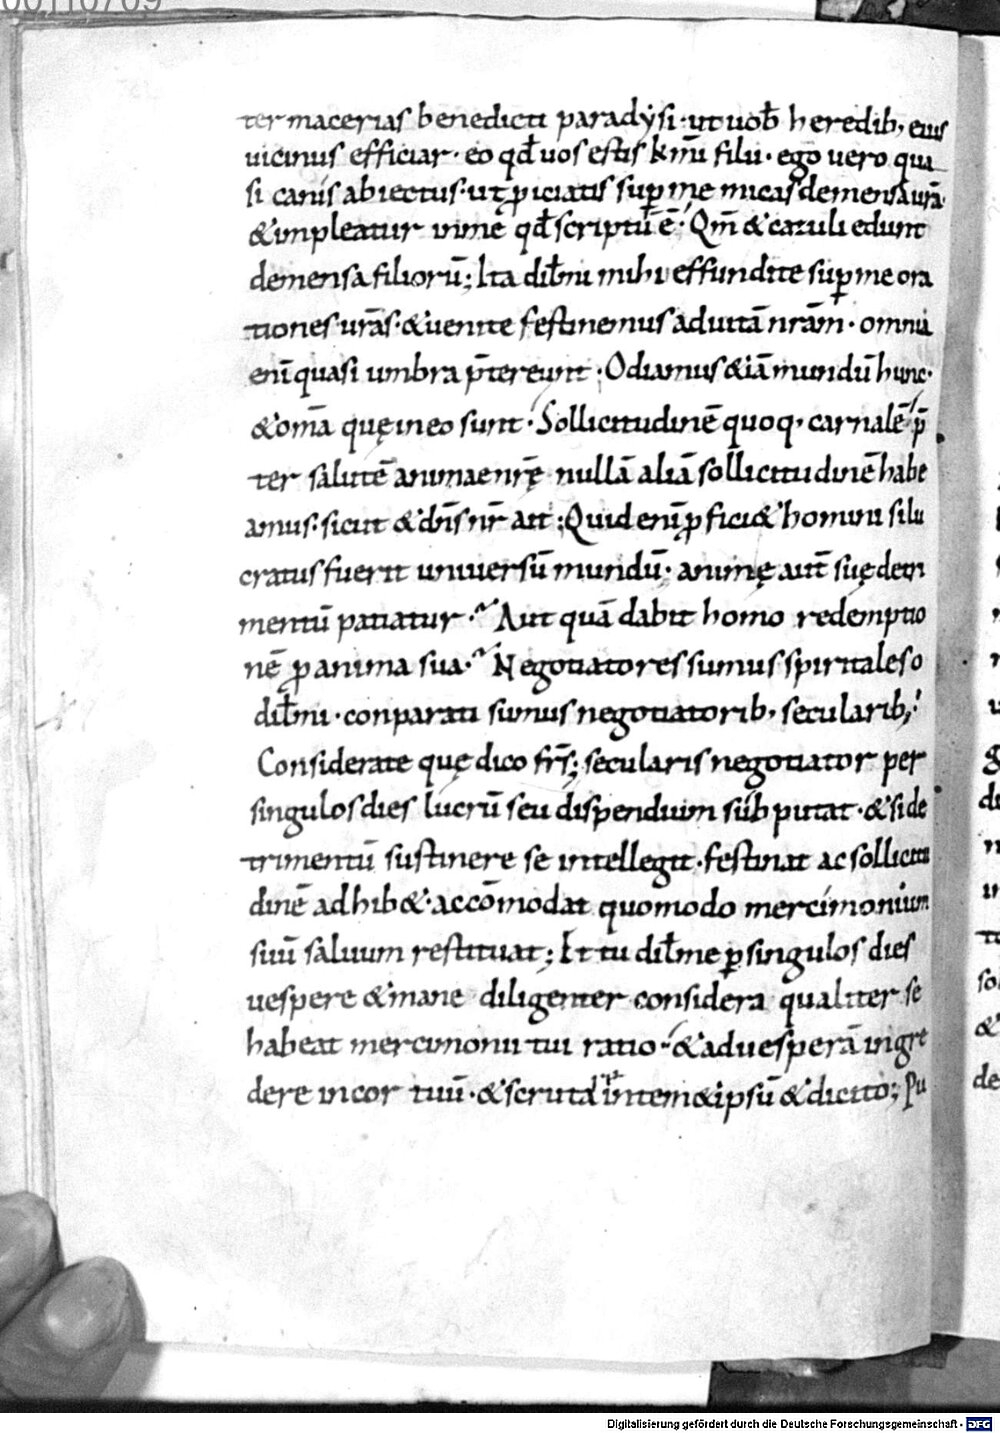 00110709
ter macerias benedicti paradysi· ut uob̄ heredib, eius
uicinus efficiar· eo qd̄ uos estis km̄i filii· ego uero qua
si canis abiectus· ut ꝓiciatis suꝑ me micas de mensa urā·
& impleatur in me qd̄ scriptū ē· Qm̄ & catuli edunt
de mensa filiorū; Ita dil̄mi mihi effundite suꝑ me ora
tiones urās· & uenite festinemus ad uitā nrām· omnia
enī quasi umbra p̄tereunt· Odiamus & iā mundū hunc·
& om̄a quę in eo sunt· Sollicitudinē quoq, carnalē p̄
ter salutē animae nrę̄ nullā aliā sollicitudinē habe
amus· sicut & dn̄s nr̄ ait; Quid enī ꝓfici& homini si lu
cratus fuerit uniuersū mundū· animę aut̄ suę detri
mentū patiatur· Aut quā dabit homo redemptio
nē ꝓ anima sua· Negotiatores sumus spiritales o
dil̄mi· conparati sumus negotiatorib, secularib,·
Considerate quę dico fr̄s; secularis negotiator per
singulos dies lucrū seu dispendium sub putat· & si de
trimentū sustinere se intellegit· festinat ac sollicitu
dinē adhib&· accōmodat quomodo mercimonium
suū saluum restituat; Et tu dil̄me ꝑ singulos dies
uespere & mane diligenter considera qualiter se
habeat mercimonii tui ratio· & ad uesperā ingre
dere in cor tuū· & scruta intem&ipsū & dicito; Pu
Digitalisierung gefördert durch die Deutsche Forschungsgemeinschaft - DFG